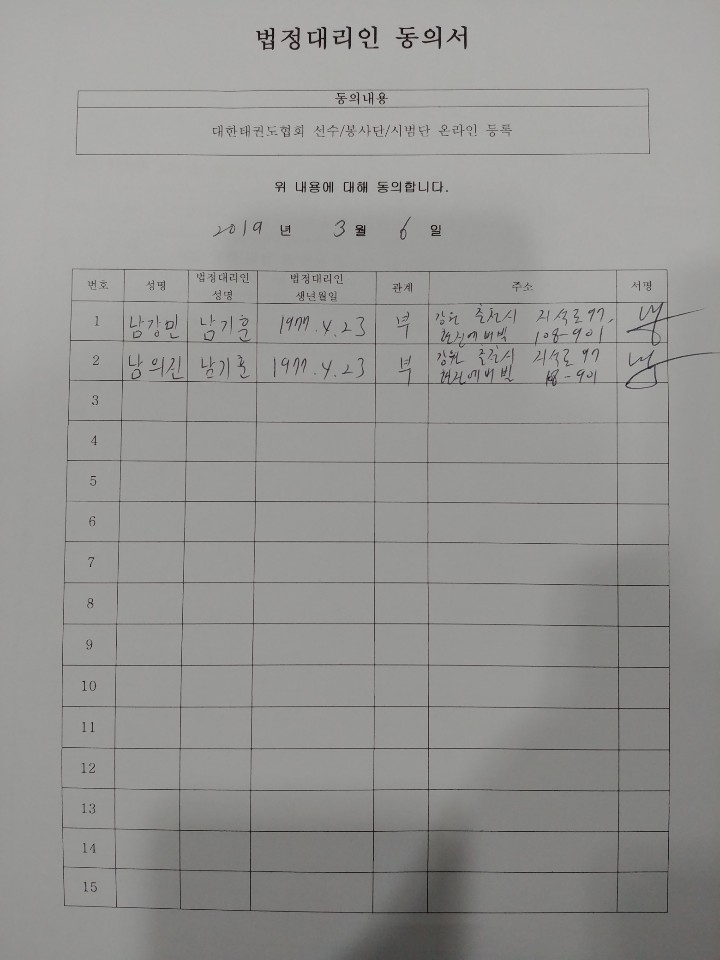 법정대리인 동의서
동의내용
대한태권도협회 선수/봉사단/시범단 온라인 등록
위 내용에 대해 동의합니다.
2019 년 3 월 6 일
번호 성명 법정대리인 성명 법정대리인 생년월일 관계 주소 서명
1 남강민 남기훈 1977.4.23 부 강원 춘천시 지석로 97,
108-901
2 남의진 남기훈 1977.4.23 부 강원 춘천시 지석로 97
108-901
3
4
5
6
7
8
9
10
11
12
13
14
15